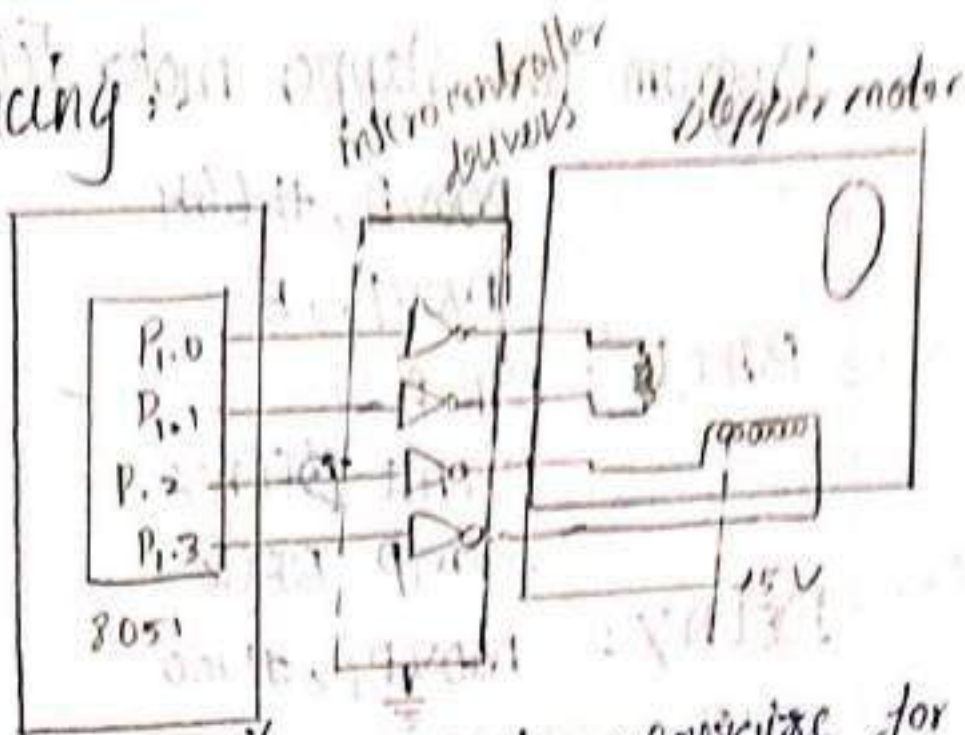 cing:
microcontroller
drivers
stepper motor
P1.0
P1.1
P1.2
P1.3
8051
15 V
for